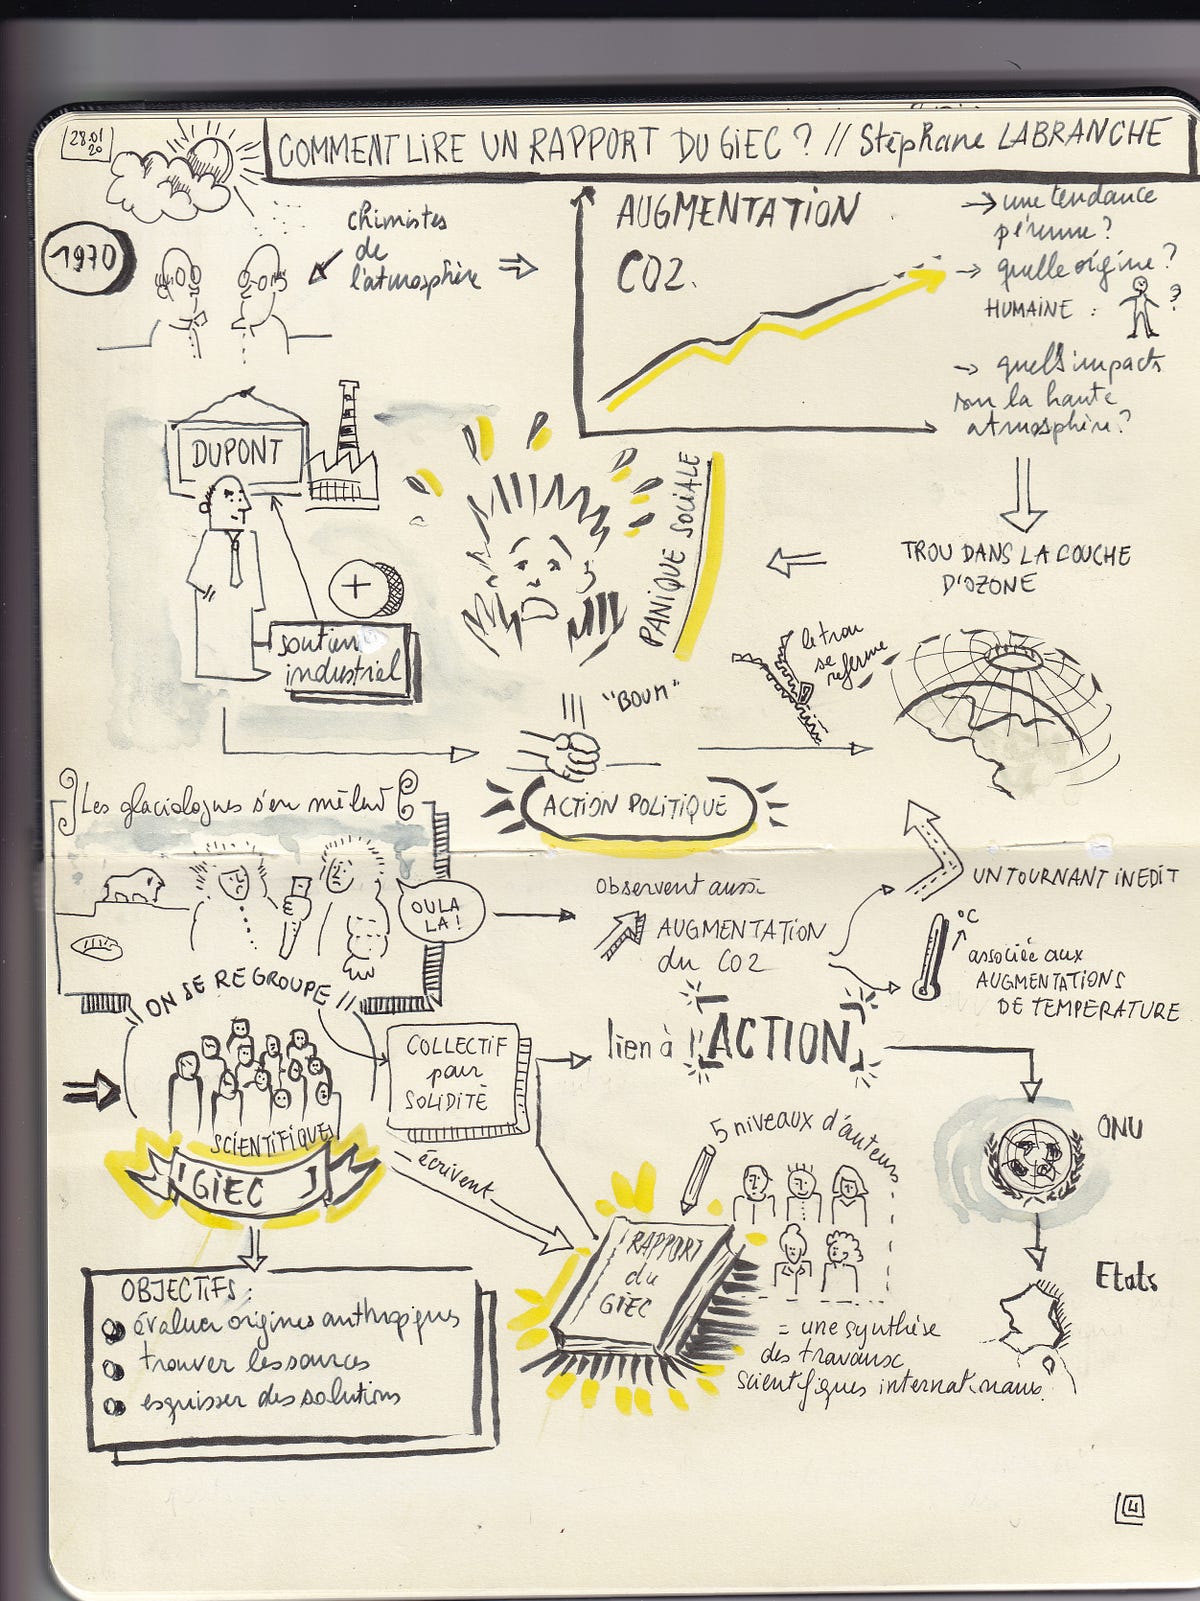 28.01
20
COMMENT LIRE UN RAPPORT DU GIEC ? // Stéphane LABRANCHE
1970
chimistes
de
l'atmosphère
AUGMENTATION
CO2.
→ une tendance
pérenne ?
→ quelle origine ?
HUMAINE : ?
→ quels impacts
sur la haute
atmosphère ?
DUPONT
+
soutien
industriel
PANIQUE SOCIALE
TROU DANS LA COUCHE
D'OZONE
le trou
se referme
"BOUM"
ACTION POLITIQUE
Les glaciologues s'en mêlent
OULA
LA !
Observent aussi
AUGMENTATION
du CO2
UN TOURNANT INEDIT
°C
associée aux
AUGMENTATIONS
DE TEMPERATURE
ON SE REGROUPE !!
COLLECTIF
pour
SOLIDITÉ
lien à l'ACTION
SCIENTIFIQUES
GIEC
écrivent
5 niveaux d'auteurs
ONU
Etats
RAPPORT
du
GIEC
= une synthèse
des travaux
scientifiques internationaux.
OBJECTIFS :
évaluer origines anthropiques
trouver les sources
esquisser des solutions